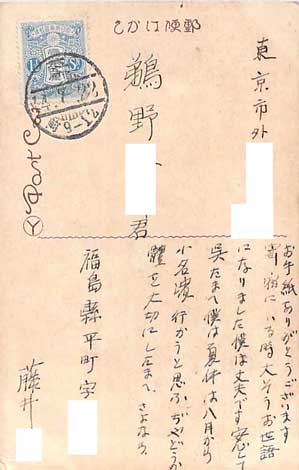 郵便はかき
東京市外
鵜野
君
Post Card
お手紙ありがとうございます
寄宿にいる時大そうお世話
になりました僕は丈夫です安心して
呉たまへ僕は夏休は八月から
小名濱へ行かうと思ふ
體を大切にしたまへ さよなら
福島縣平町字
藤井